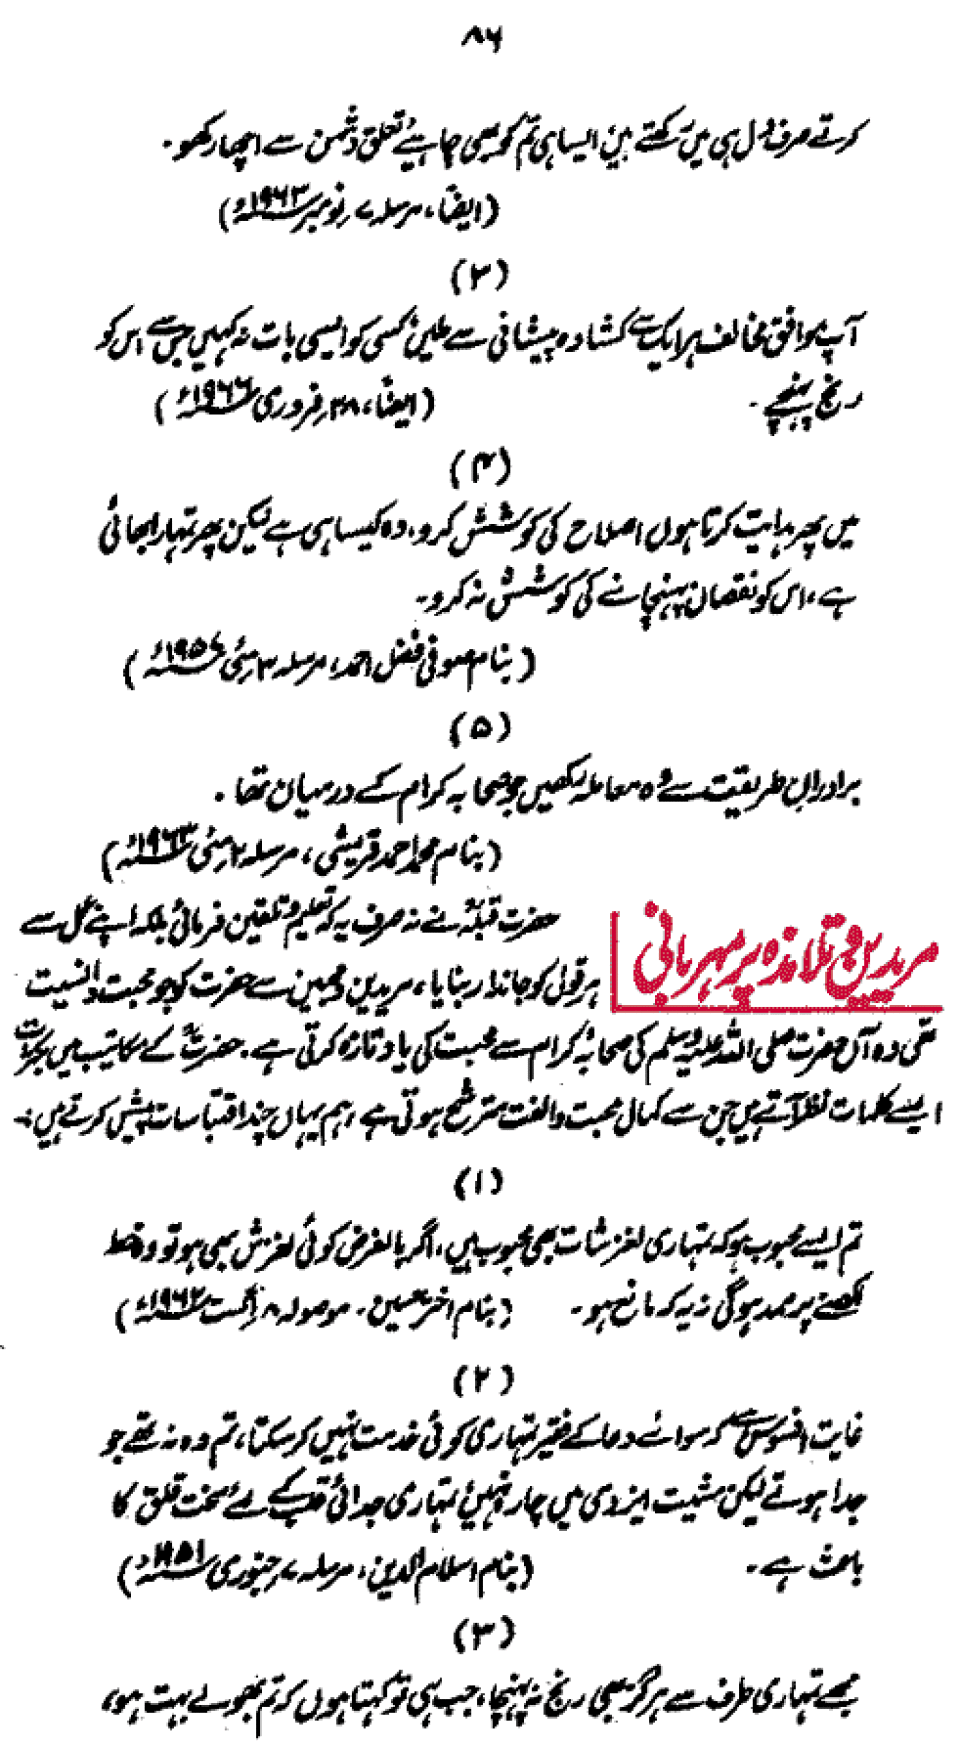 ۸۶
کرتے صرف دل ہی میں رکھتے ہیں ایسا ہی تم کو بھی چاہیے تعلق دشمن سے اچھا رکھو۔
(ایضاً، مرسلہ ۷ نومبر ۱۹۶۳ء)
(۳)
آپ موافق مخالف ہر ایک سے کشادہ پیشانی سے ملیں کسی کو ایسی بات نہ کہیں جس سے اس کو
رنج پہنچے۔ (ایضاً، ۲۸ فروری ۱۹۶۶ء)
(۴)
میں پھر ہدایت کرتا ہوں اصلاح کی کوشش کرو، وہ کیسا ہی ہے لیکن پھر تمہارا بھائی
ہے، اس کو نقصان پہنچانے کی کوشش نہ کرو۔
(بنام صوفی فضل احمد، مرسلہ ۳ مئی ۱۹۵۷ء)
(۵)
برادران طریقت سے وہ معاملہ رکھیں جو صحابہ کرام کے درمیان تھا۔
(بنام محمد احمد قریشی، مرسلہ ۲ مئی ۱۹۶۳ء)
مریدین و تلامذہ پر مہربانی
حضرت قبلہؒ نے نہ صرف یہ کہ تعلیم و تلقین فرمائی بلکہ اپنے عمل سے
ہر قول کو جاندار بنایا، مریدین و محبین سے حضرت کو جو محبت و انسیت
تھی وہ آں حضرت صلی اللہ علیہ وسلم کی صحابۂ کرام سے محبت کی یاد تازہ کرتی ہے۔ حضرتؒ کے مکاتیب میں بکثرت
ایسے کلمات نظر آتے ہیں جن سے کمال محبت و الفت مترشح ہوتی ہے، ہم یہاں چند اقتباسات پیش کرتے ہیں:۔
(۱)
تم ایسے محبوب ہو کہ تمہاری لغزشات بھی محبوب ہیں، اگر بالفرض کوئی لغزش بھی ہو تو وہ خط
لکھنے پر ممد ہوگی نہ یہ کہ مانع ہو۔ (بنام اختر حسین۔ موصولہ ۸ اگست ۱۹۶۲ء)
(۲)
غایت افسوس ہے کہ سوائے دعا کے فقیر تمہاری کوئی خدمت نہیں کر سکتا، تم وہ نہ تھے جو
جدا ہوتے لیکن مشیت ایزدی میں چارہ نہیں، تمہاری جدائی قلب کے لئے سخت قلق کا
باعث ہے۔ (بنام اسلام الدین، مرسلہ ۷ جنوری ۱۹۵۱ء)
(۳)
مجھے تمہاری طرف سے ہرگز بھی رنج نہ پہنچا، جب ہی تو کہتا ہوں کہ تم بھولے بہت ہو،